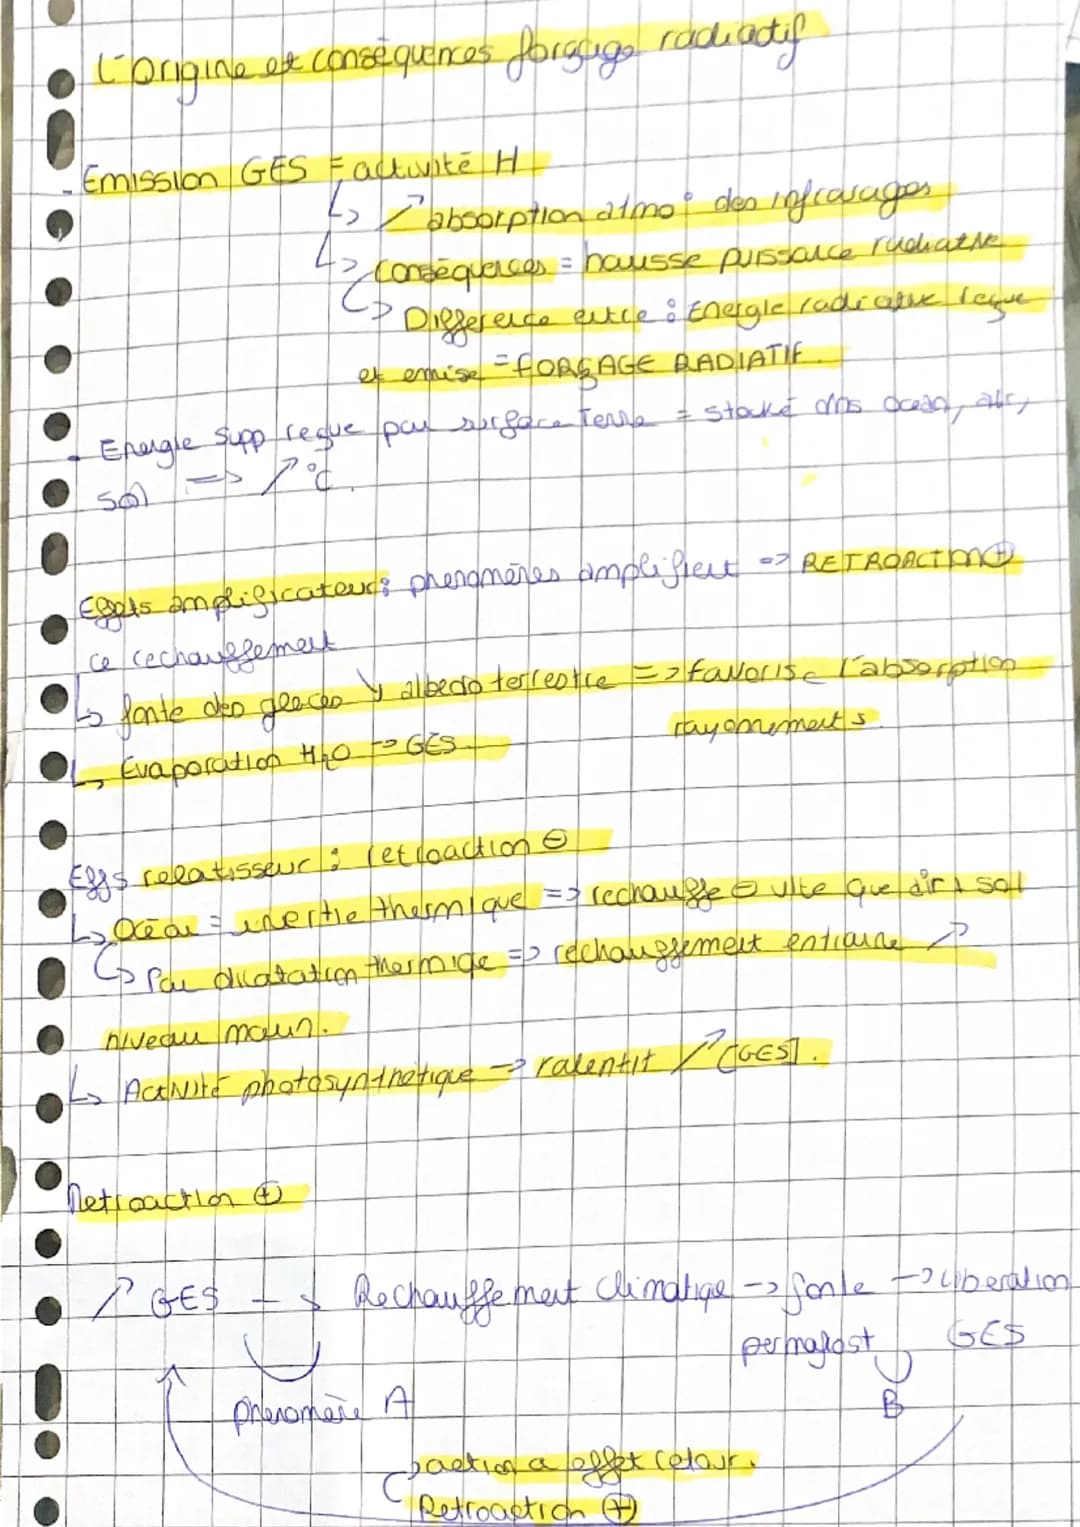 L'origine et conséquences forçage radiatif
- Emission GES = activité H
↳ ↗ absorption atmo° des infrarouges
↳ conséquences = hausse puissance radiative
↳ Difference entre : Energie radiative reçue
et emise = FORÇAGE RADIATIF.
• Energie supp reçue par surface Terre = stocké dns ocean, air,
sol => ↗ °C.
Effets amplificateur : phenomènes amplifient => RETROACTION ⊕
ce rechauffement
↳ fonte des glaces ↘ albedo terrestre => favorise l'absorption
rayonnements.
↳ Evaporation H₂O -> GES.
Effs relatisseur : retroaction ⊖
↳ Océan = inertie thermique => rechauffe ⊖ vite que air & sol
↳ Par dilatation thermique => rechauffement entraine ↗
niveau marin.
↳ Activité photosynthétique -> ralentit ↗ [GES].
Retroaction ⊕
↗ GES -> Rechauffement climatique -> fonte -> liberation
permafost GES
phenomène A B
↳ action a effet retour.
Retroaction ⊕